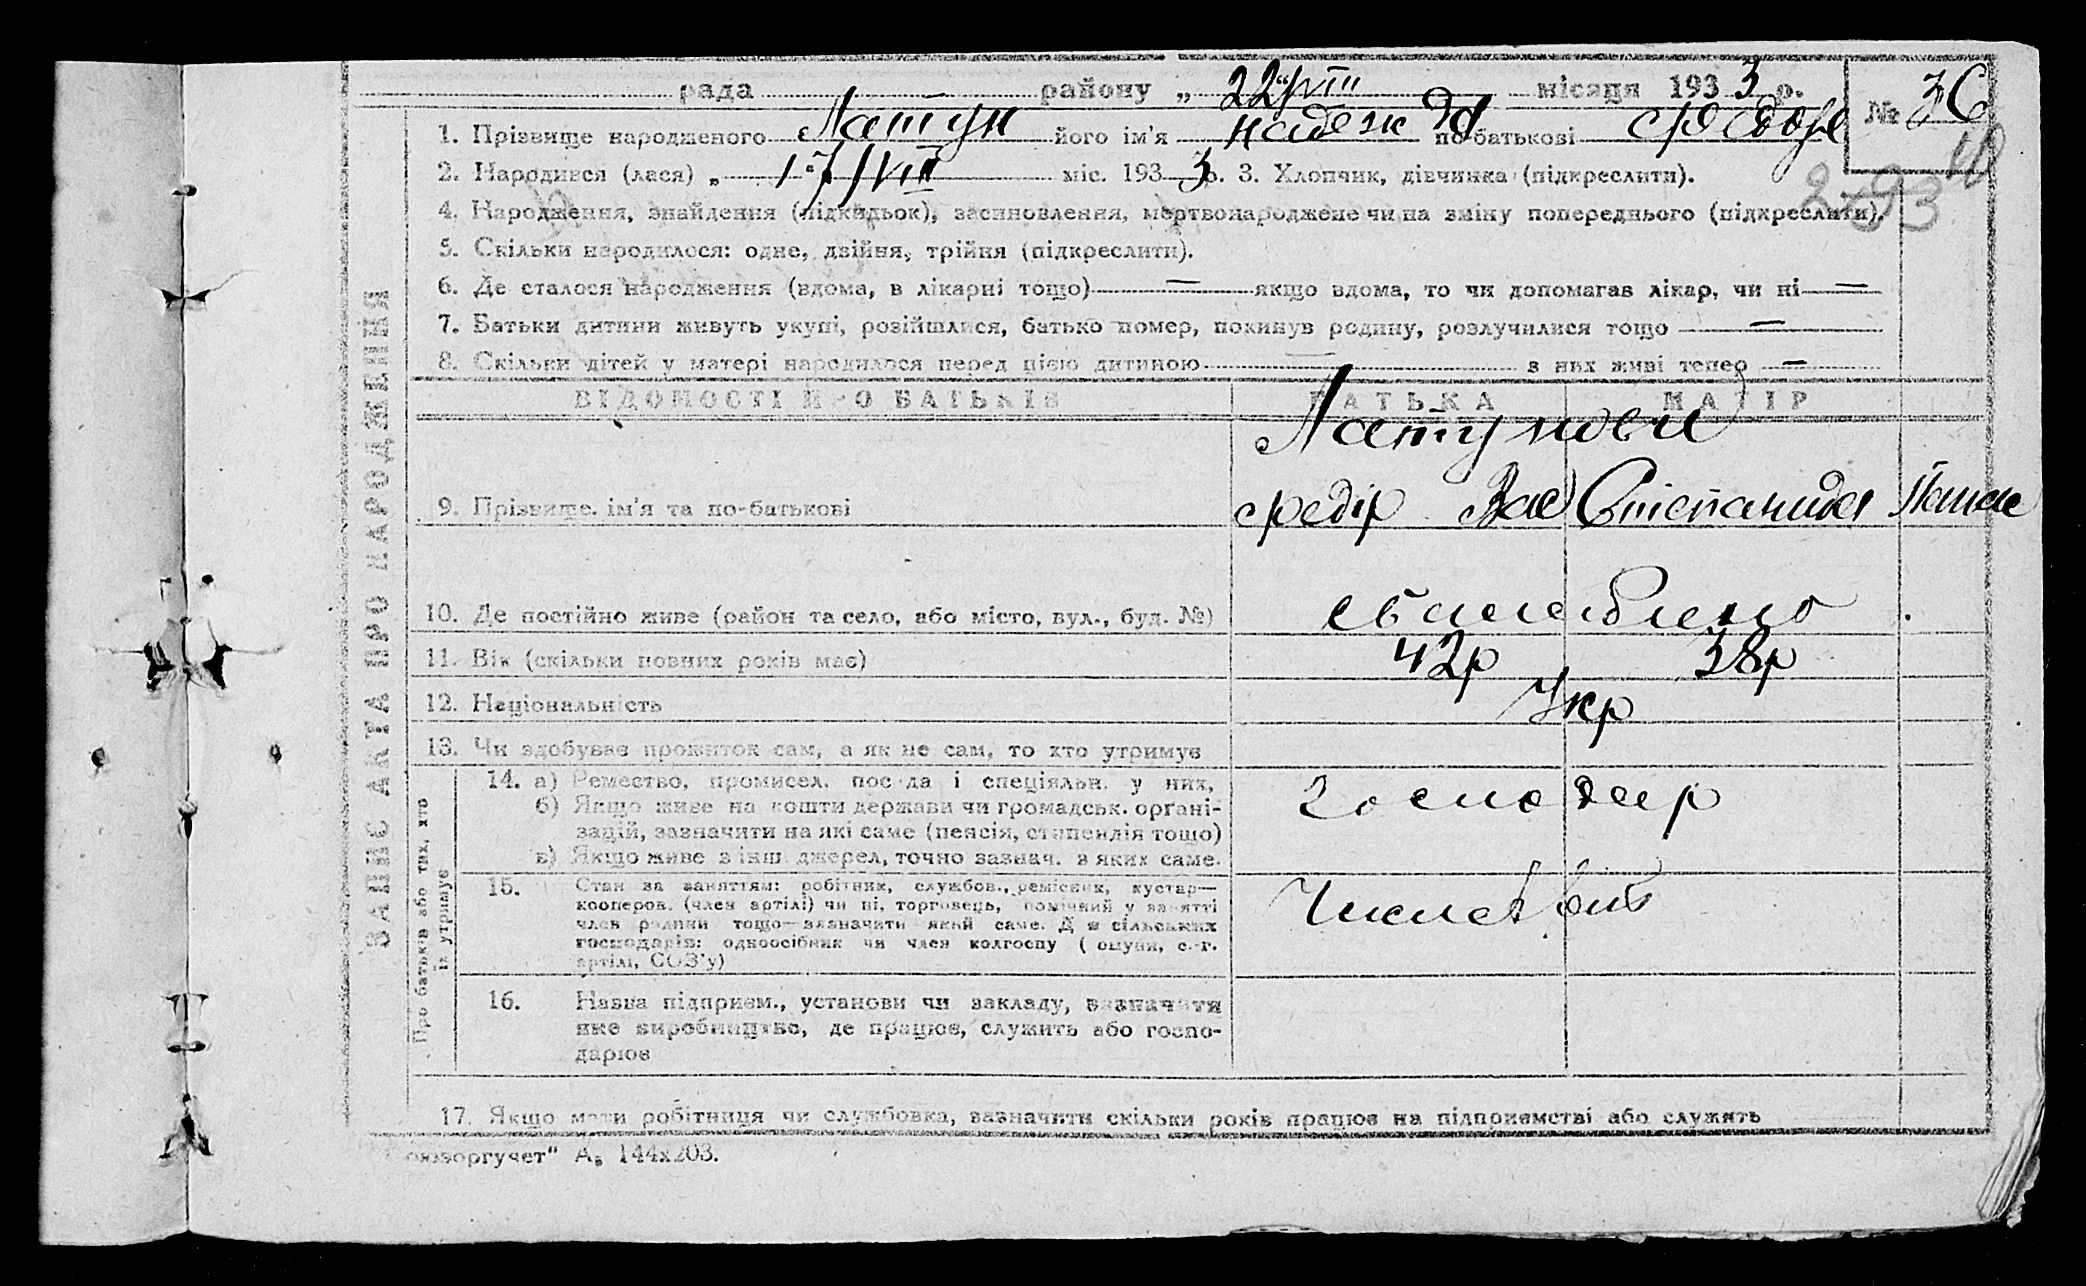 рада району „ 22/VIII місяця 1933 р.
№ 36
1. Прізвище народженого Латун його ім'я Надежда по батькові Федор
2. Народився (лася) „ 17/VIII міс. 1933 р. 3. Хлопчик, дівчинка (підкреслити).
293
4. Народження, знайдення (підкидьок), засиновлення, мертвонароджене чи на зміну попереднього (підкреслити).
5. Скільки народилося: одне, двійня, трійня (підкреслити).
6. Де сталося народження (вдома, в лікарні тощо) — якщо вдома, то чи допомагав лікар, чи ні —
7. Батьки дитини живуть укупі, розійшлися, батько помер, покинув родину, розлучилися тощо —
8. Скільки дітей у матері народилося перед цією дитиною — з них живі тепер —
ЗАПИС АКТА ПРО НАРОДЖЕННЯ
ВІДОМОСТІ ПРО БАТЬКІВ БАТЬКА МАТІР
Латунови
9. Прізвище, ім'я та по-батькові Федір Вас Степанида
10. Де постійно живе (район та село, або місто, вул., буд. №)
11. Вік (скільки повних років має) 42р 38р
12. Національність Укр
13. Чи здобуває прожиток сам, а як не сам, то хто утримує
Про батьків або тих, хто їх утримує
14. а) Ремество, промисел, посада і спеціяльн. у них,
б) Якщо живе на кошти держави чи громадськ. органі-
зацій, зазначити на які саме (пенсія, стипендія тощо)
в) Якщо живе з інш. джерел, точно зазнач. з яких саме.
господар
15. Стан за заняттям: робітник, службов., ремісник, кустар—
кооперов. (член артілі) чи ні, торговець, помічний у занятті
член родини тощо—зазначити який саме. Для сільських
господарів: одноосібник чи член колгоспу (комуни, с.-г.
артілі, СОЗ'у)
16. Назва підприєм., установи чи закладу, зазначити
яке виробництво, де працює, служить або госпо-
дарює
17. Якщо мати робітниця чи службовка, зазначити скільки років працює на підприємстві або служить
„Союзоргучет" А₅ 144х203.